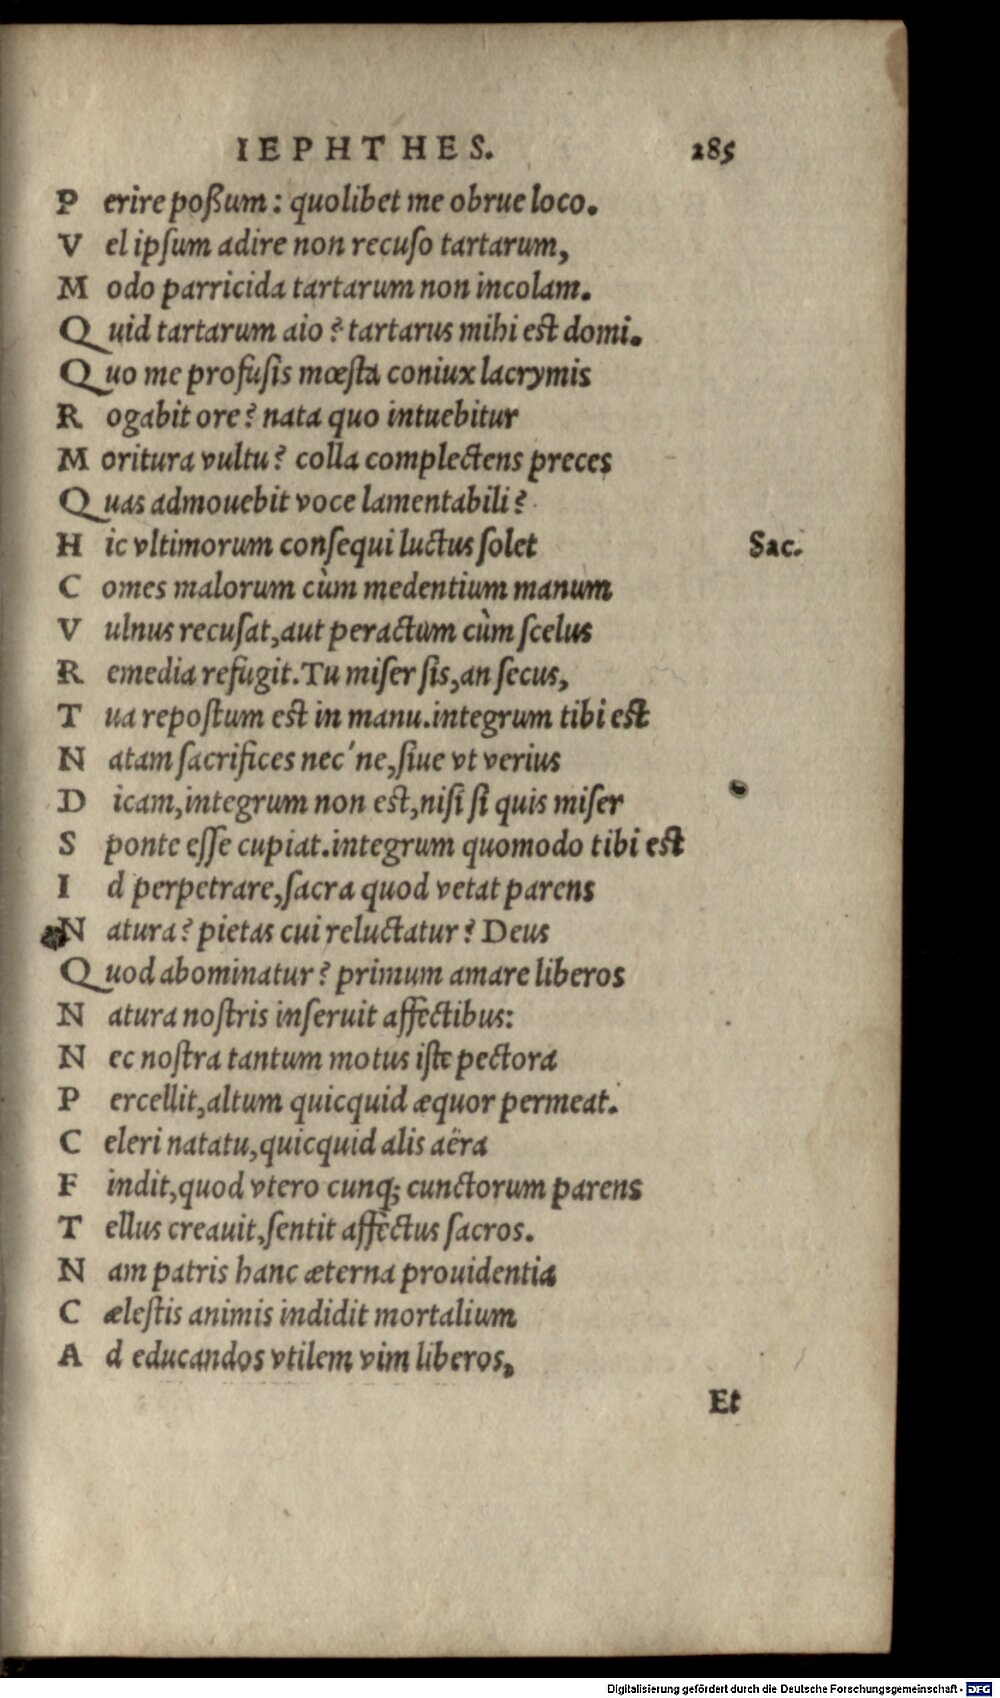 IEPHTHES. 285
Perire poßum: quolibet me obrue loco.
Vel ipſum adire non recuſo tartarum,
Modo parricida tartarum non incolam.
Quid tartarum aio? tartarus mihi est domi.
Quo me profuſis mœſta coniux lacrymis
Rogabit ore? nata quo intuebitur
Moritura vultu? colla complectens preces
Quas admouebit voce lamentabili?
Hic vltimorum conſequi luctus ſolet Sac.
Comes malorum cùm medentium manum
Vulnus recuſat, aut peractum cùm ſcelus
Remedia refugit. Tu miſer ſis, an ſecus,
Tua repoſtum est in manu. integrum tibi est
Natam ſacrifices nec'ne, ſiue vt verius
Dicam, integrum non est, niſi ſi quis miſer
Sponte eſſe cupiat. integrum quomodo tibi est
Id perpetrare, ſacra quod vetat parens
Natura? pietas cui reluctatur? Deus
Quod abominatur? primum amare liberos
Natura noſtris inſeruit affectibus:
Nec noſtra tantum motus iſte pectora
Percellit, altum quicquid æquor permeat.
Celeri natatu, quicquid alis aëra
Findit, quod vtero cunq; cunctorum parens
Tellus creauit, ſentit affectus ſacros.
Nam patris hanc æterna prouidentia
Cæleſtis animis indidit mortalium
Ad educandos vtilem vim liberos,
Et
Digitalisierung gefördert durch die Deutsche Forschungsgemeinschaft - DFG